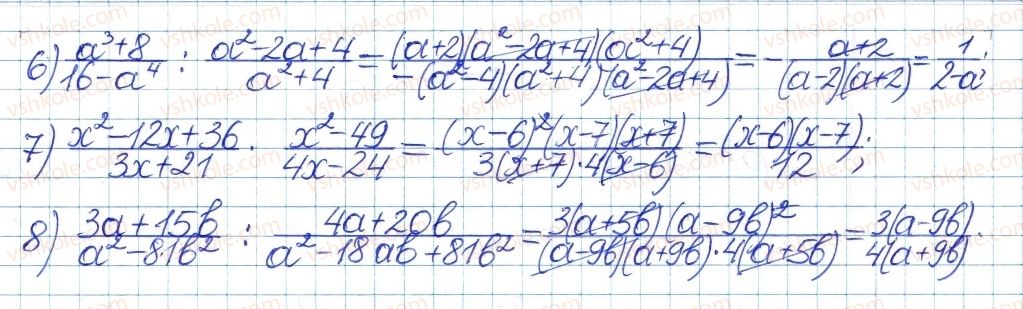 6) (a³+8)/(16-a⁴) : (a²-2a+4)/(a²+4) = ((a+2)(a²-2a+4)(a²+4))/(-(a²-4)(a²+4)(a²-2a+4)) = -(a+2)/((a-2)(a+2)) = 1/(2-a);
7) (x²-12x+36)/(3x+21) · (x²-49)/(4x-24) = ((x-6)²(x-7)(x+7))/(3(x+7)·4(x-6)) = ((x-6)(x-7))/12;
8) (3a+15b)/(a²-81b²) : (4a+20b)/(a²-18ab+81b²) = (3(a+5b)(a-9b)²)/((a-9b)(a+9b)·4(a+5b)) = (3(a-9b))/(4(a+9b)).